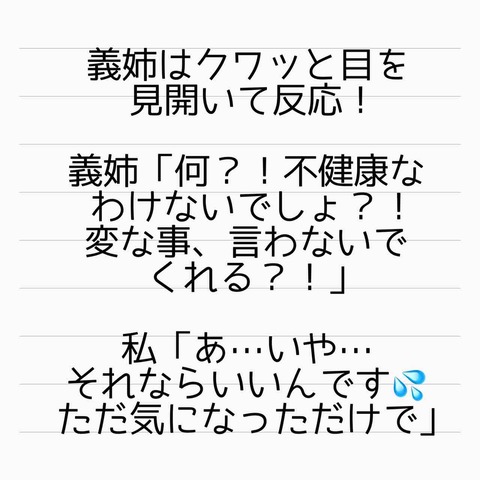 義姉はクワッと目を
見開いて反応！
義姉「何？！不健康な
わけないでしょ？！
変な事、言わないで
くれる？！」
私「あ…いや…
それならいいんです💦
ただ気になっただけで」